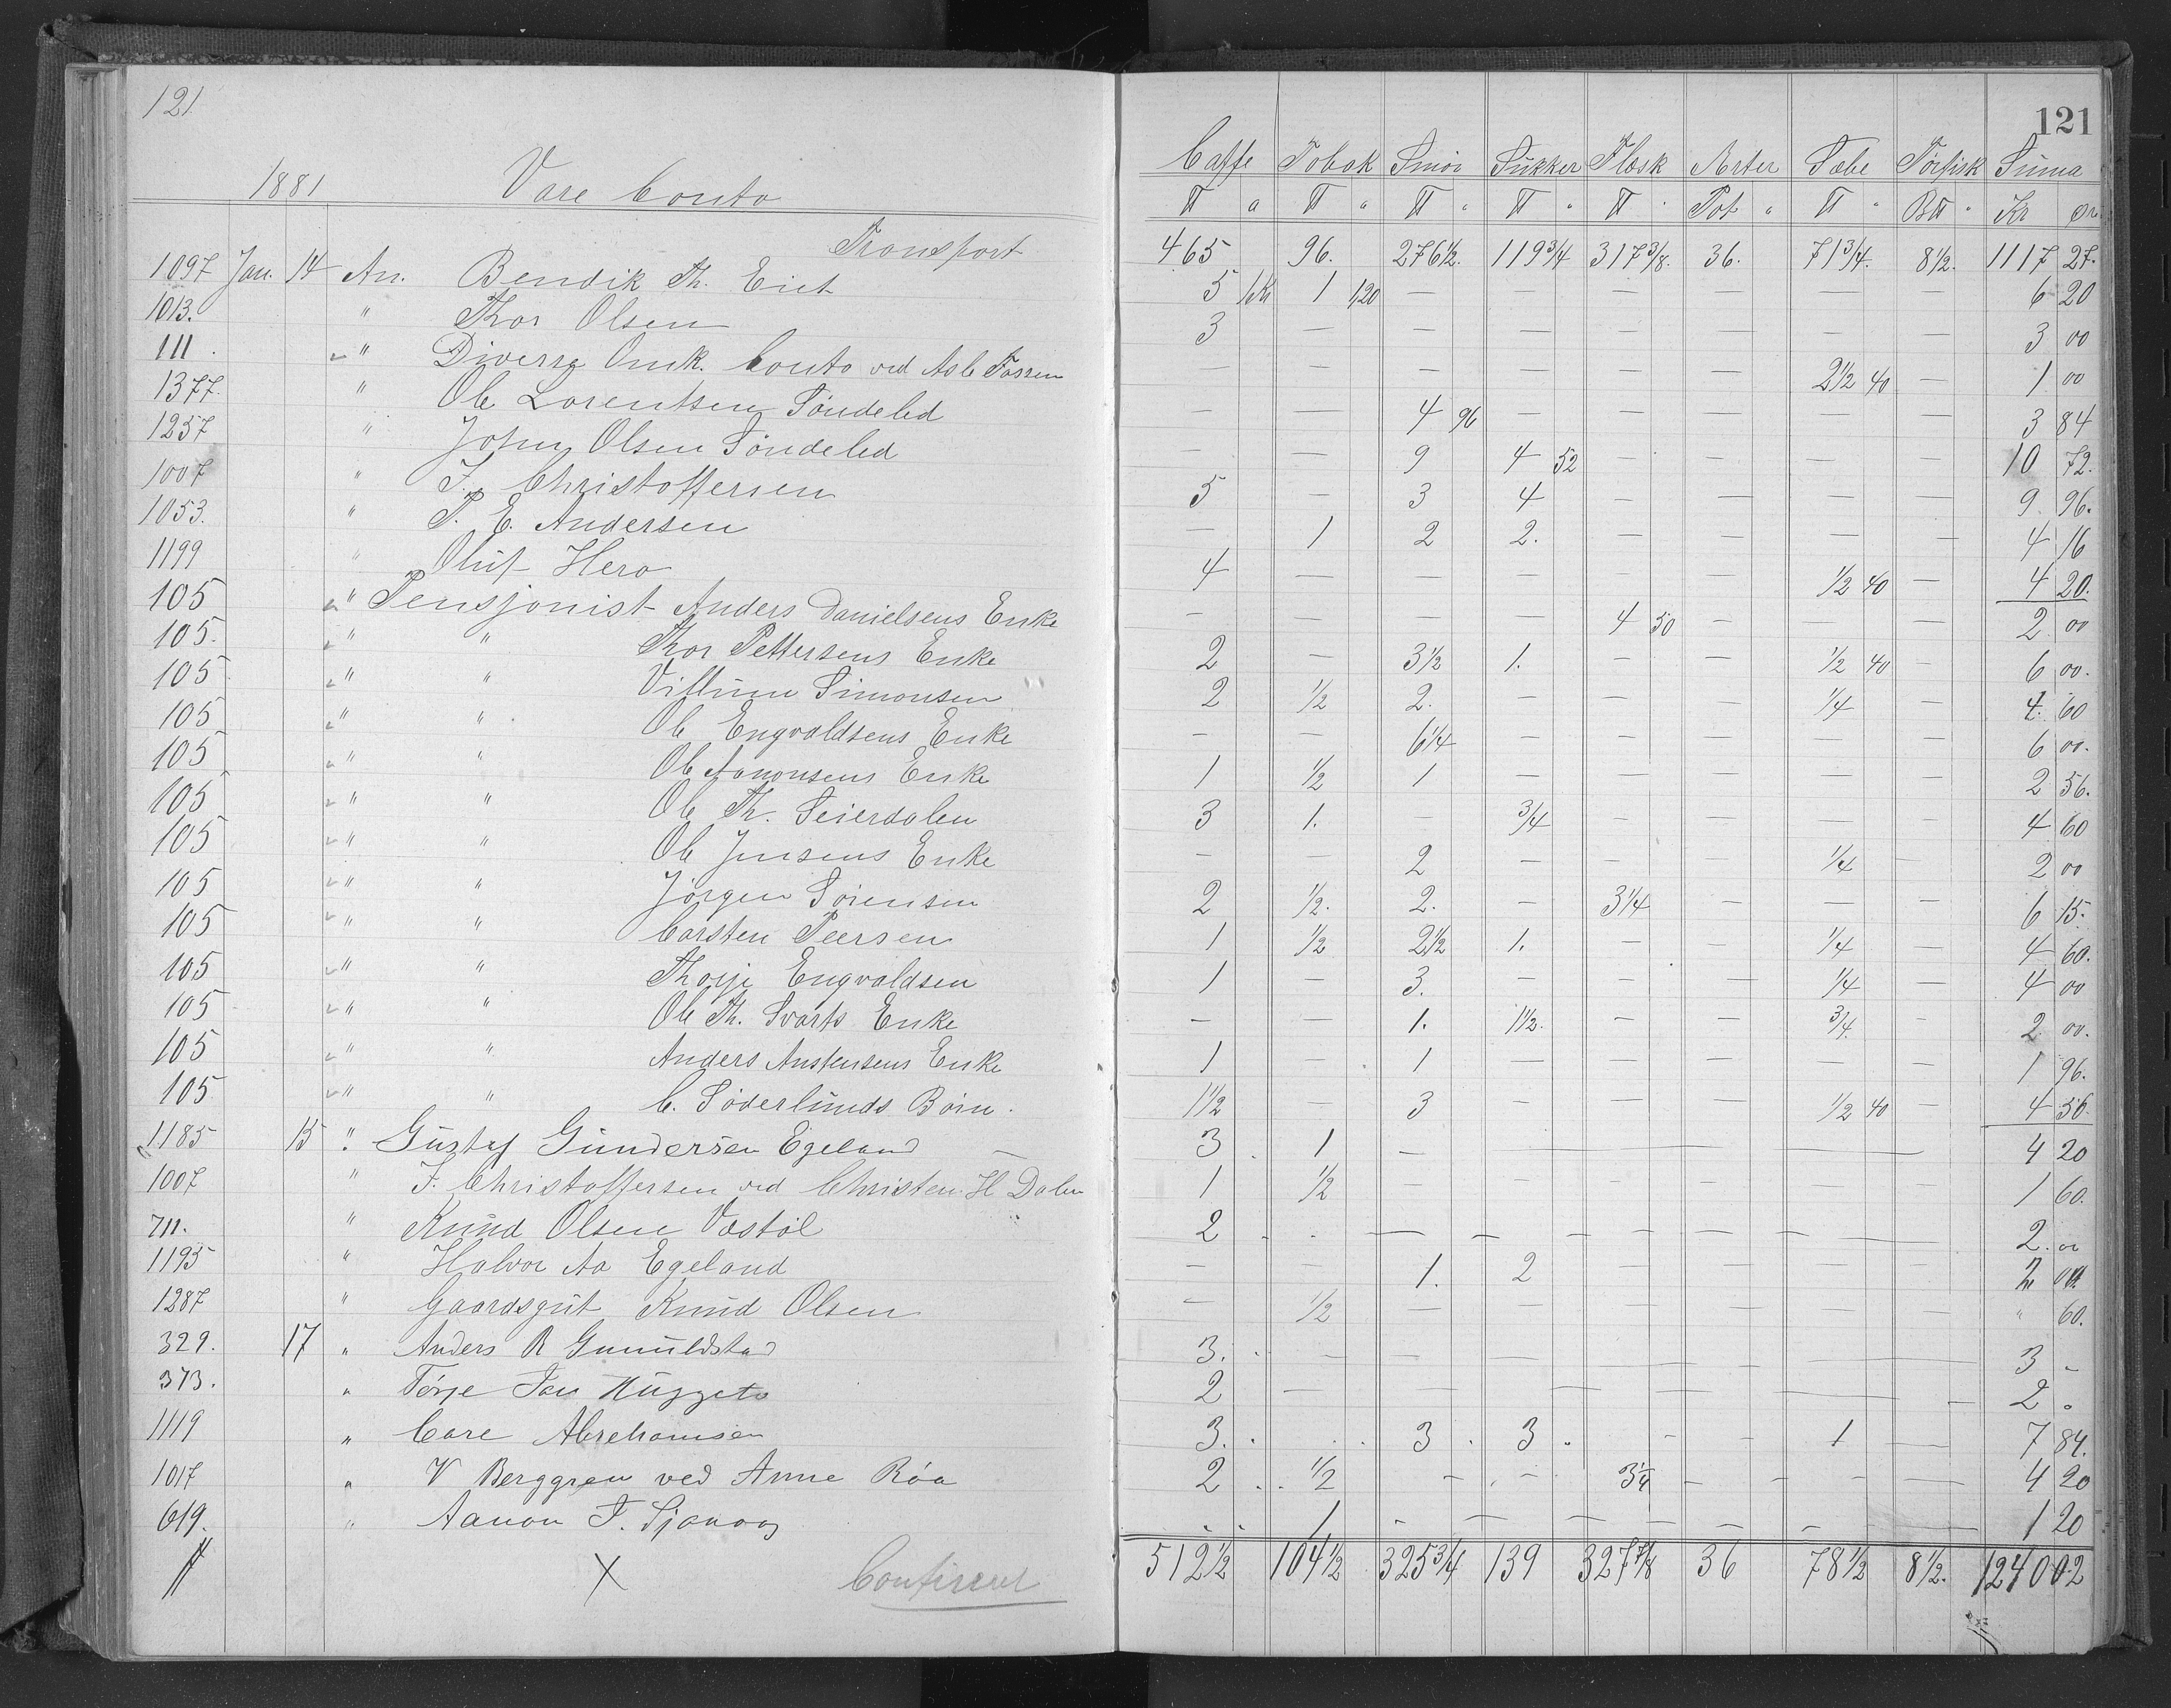 121
1881 Vare Conto
Transport
1097 Jan. 14 An. Bendik Th. Eiet
1013. " Thor Olsen
111. " Diverse Omk. Conto ved Asle Fossen
1377. " Ole Lorentsen Söndeled
1237 " John Olsen Söndeled
1007 " J. Christoffersen
1053. " P. E. Andersen
1199 " Oluf Hero
105 " Pensjonist Anders Danielsens Enke
105. " " Thor Pettersens Enke
105 " " Villum Simonsen
105 " " Ole Engvaldsens Enke
105 " " Ole Aanonsens Enke
105 " " Ole Th. Seierdalen
105 " " Ole Jensens Enke
105 " " Jörgen Sörensen
105 " " Carsten Peersen
105 " " Thorje Engvaldsen
105 " " Ole Th. Svarts Enke
105 " " Anders Austensens Enke
105 " " C. Söderlunds Börn.
1185 15 " Gustaf Gundersen Egeland
1007 " J. Christoffersen ved Christen H Dalen
711. " Knud Olsen Vastöl
1195 " Halvor Aa Egeland
1287 " Gaardsgut Knud Olsen
329. 17 " Anders R Gumuldstad
373. " Törje Jan
1119 " Care Abrehamsen
1017 " V Berggren ved Anne Röa
619. " Aanon T.
X
121
Caffe Tobak Smör Sukker Flæsk Ærter Sæbe Törfisk Suma
℔ a ℔ " ℔ " ℔ " ℔ " Pot " ℔ " B℔ " Kr Ör
465 96. 276 1/2. 119 3/4 317 3/8. 36. 71 3/4. 8 1/2. 1117 27.
5 1Kr 1 120 — — — — — — 6 20
3 — — — — — — — 3 00
— — — — — — 2 1/2 40 — 1 00
— — 4 96 — — — — — 3 84
— — 9 4 52 — — — — 10 72.
5 — 3 4 — — — — 9 96.
— 1 2 2. — — — — 4 16
4 — — — — — 1/2 40 — 4 20.
— — — — 4 50 — — — 2 00
2 — 3 1/2 1. — — 1/2 40 — 6 00.
2 1/2 2. — — — 1/4 — 4. 60
— — 6 1/4 — — — — — 6 00.
1 1/2 1 — — — — — 2 56.
3 1. — 3/4 — — — — 4 60
— — 2 — — — 1/4 — 2 00
2 1/2. 2. — 3 1/4 — — — 6 15.
1 1/2 2 1/2 1. — — 1/4 — 4 60.
1 — 3. — — — 1/4 — 4 00
— — 1. 1 1/2. — — 3/4. — 2 00.
1 — 1 — — — — — 1 96.
1 1/2 — 3 — — — 1/2 40 — 4 56.
3 1 — — — — 4 20
1 1/2 — — — — — — 1 60.
2 — — — — — — 2. 00
— — 1. 2 — — — — 2 00
— 1/2 — — — — — — " 60.
3. — — — — — — — 3 —
2 — — — — 2 "
3. 3 3 — — 1 — 7 84.
2 1/2 — — 3 1/4 — — — 4 20
1 — — — — — — 1 20
512 1/2 104 1/2 325 3/4 139 327 7/8 36 78 1/2 8 1/2. 1240 02